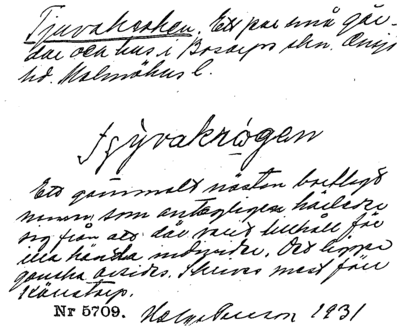 Tjuvakroken. Ett par små går-
dar och hus i Bosarps skn. Onsjö
hd. Malmöhus l.
tjỳvakrogen
Ett gammalt nästan bortlagt
namn, som antagligen härleder
sig från att där varit tillhåll för
illa kända individer. Det ligger
ganska avsides. Skrives mest förr
Nr 5709. Helge Persson 1931